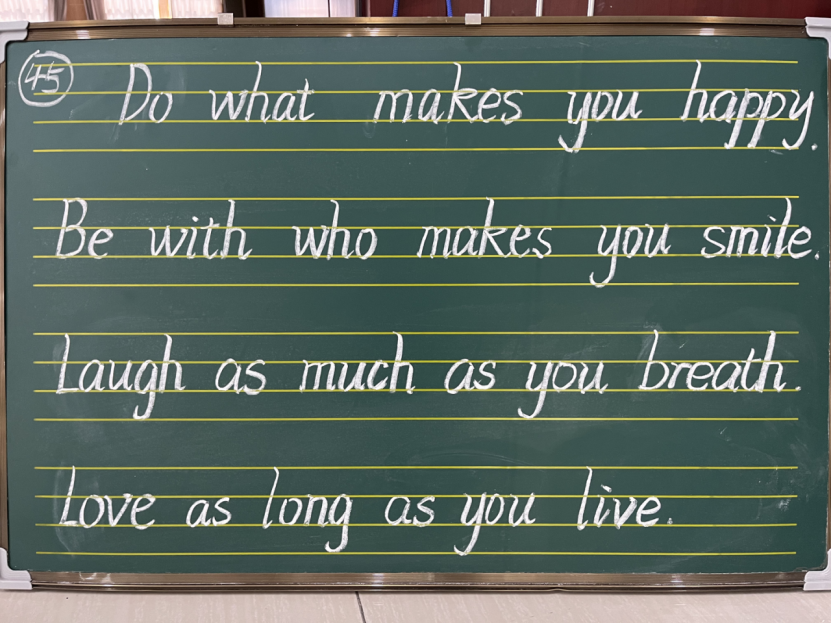 45 Do what makes you happy.
Be with who makes you smile.
Laugh as much as you breath.
Love as long as you live.